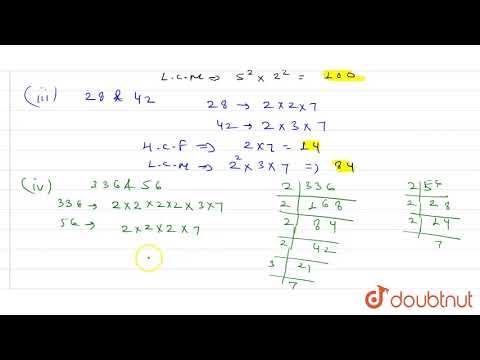 L.C.M ⇒ 5² × 2² = 100
(iii) 28 & 42
28 → 2 × 2 × 7
42 → 2 × 3 × 7
H.C.F ⇒ 2 × 7 = 14
L.C.M → 2² × 3 × 7 ⇒ 84
(iv) 336 & 56
336 → 2 × 2 × 2 × 2 × 3 × 7
56 → 2 × 2 × 2 × 7
2 336
2 168
2 84
2 42
3 21
7
2 56
2 28
2 14
7
doubtnut